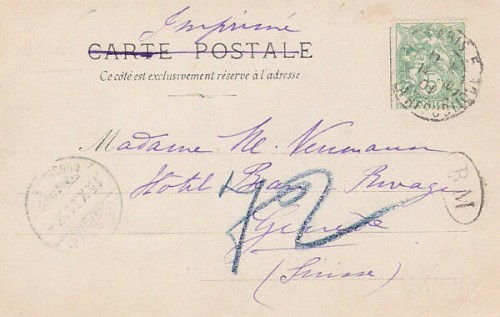 Imprimé
CARTE POSTALE
Ce côté est exclusivement réservé à l'adresse
PARIS
Madame M. Neumann
Hotel Beau Rivage
12
Genève
(Suisse)
RM